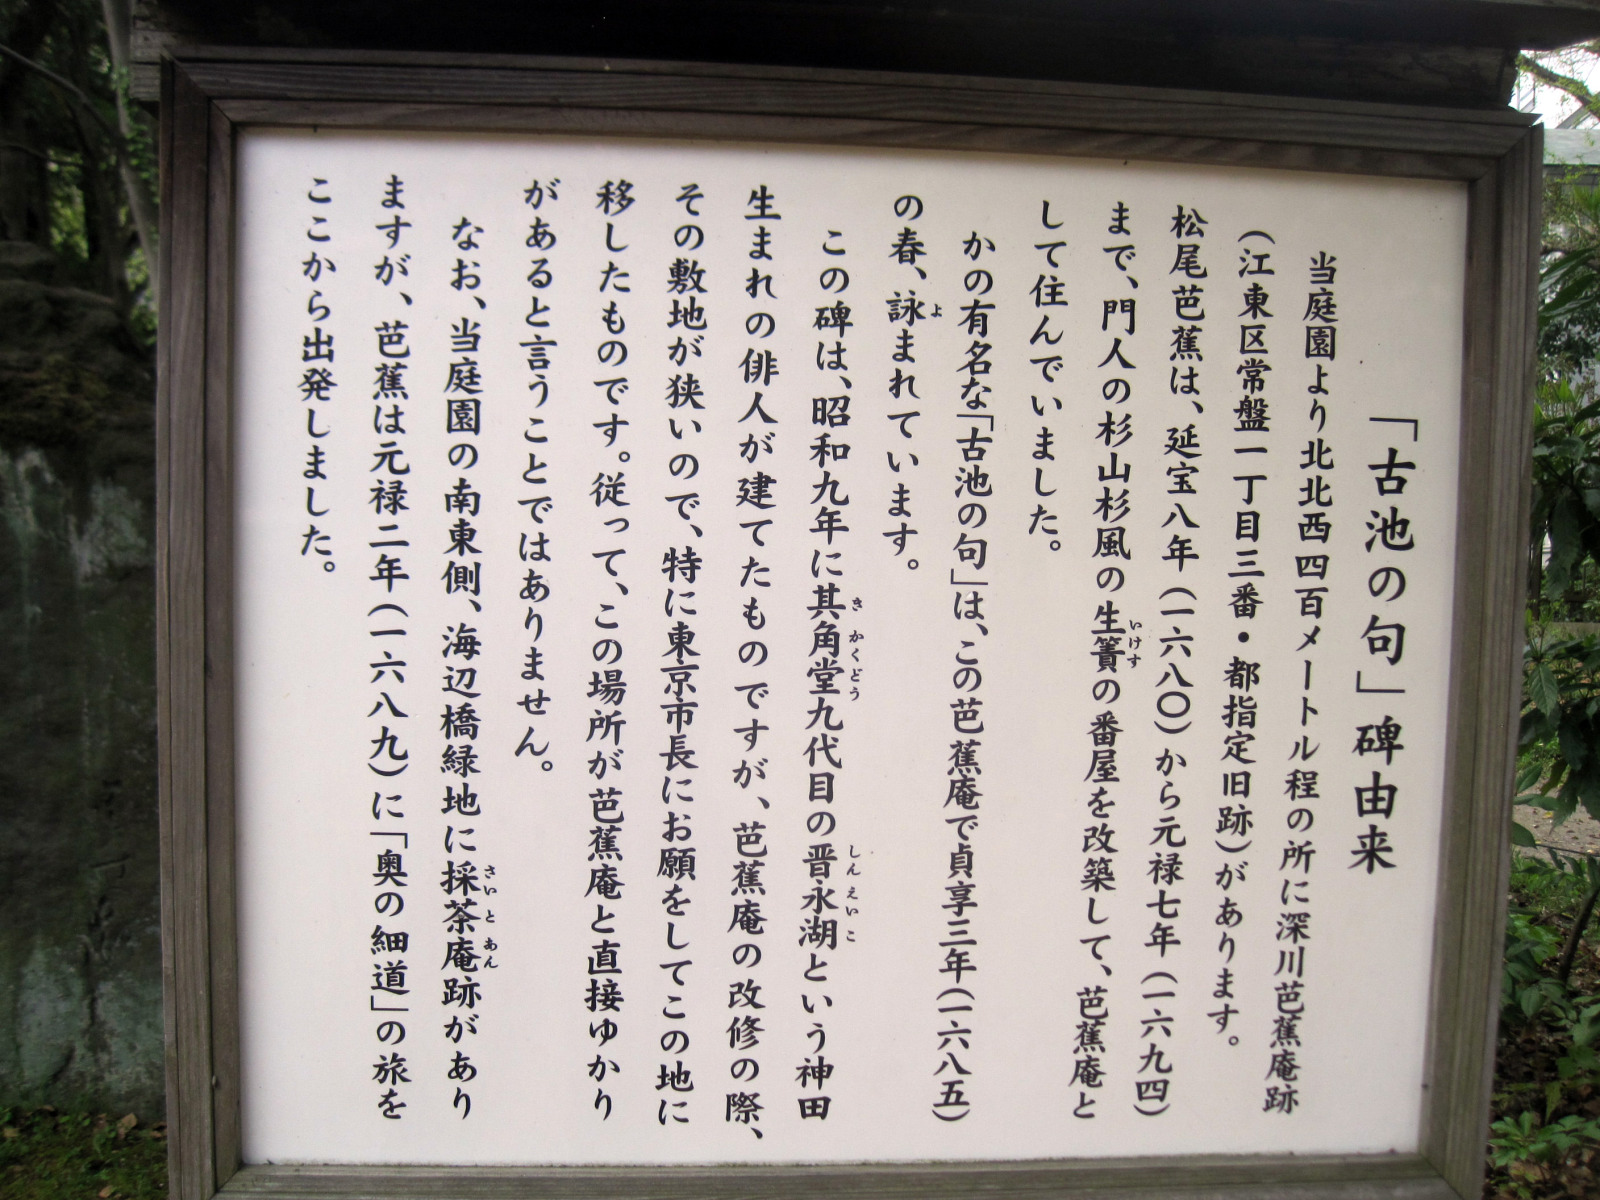 「古池の句」碑由来
当庭園より北北西四百メートル程の所に深川芭蕉庵跡
（江東区常盤一丁目三番・都指定旧跡）があります。
松尾芭蕉は、延宝八年（一六八〇）から元禄七年（一六九四）
まで、門人の杉山杉風の生簀の番屋を改築して、芭蕉庵と
いけす
して住んでいました。
かの有名な「古池の句」は、この芭蕉庵で貞享三年（一六八五）
の春、詠まれています。
よ
この碑は、昭和九年に其角堂九代目の晋永湖という神田
きかくどう しんえいこ
生まれの俳人が建てたものですが、芭蕉庵の改修の際、
その敷地が狭いので、特に東京市長にお願をしてこの地に
移したものです。従って、この場所が芭蕉庵と直接ゆかり
があると言うことではありません。
なお、当庭園の南東側、海辺橋緑地に採茶庵跡があり
さいとあん
ますが、芭蕉は元禄二年（一六八九）に「奥の細道」の旅を
ここから出発しました。